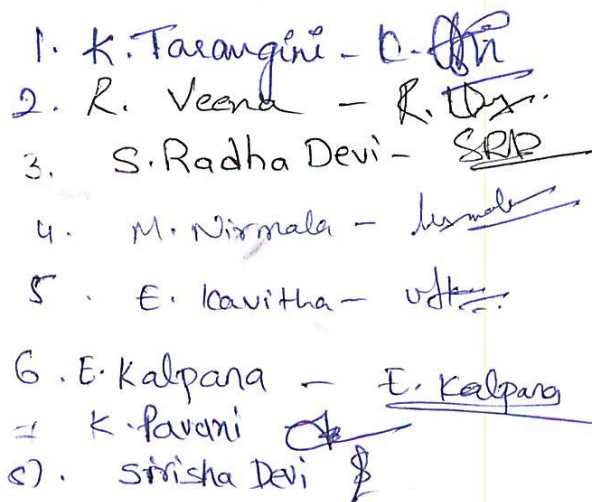 1. K. Tarangini -
2. R. Veena - R.
3. S. Radha Devi - SRD
4. M. Nirmala -
5. E. Kavitha -
6. E. Kalpana - E. Kalpana
K. Pavani
8). Sirisha Devi